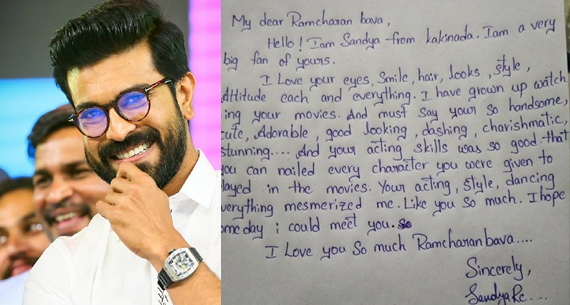 My dear Ramcharan bava,
Hello! I am Sandya from kakinada. I am a very
big fan of yours.
I Love your eyes, Smile, hair, looks, style,
Attitude each and everything. I have grown up watch
ing your movies. And must Say your so handsome,
cute, Adorable, good looking, dashing, charishmatic,
stunning.... And your acting skills was so good that
you can nailed every character you were given to
played in the movies. Your acting, style, dancing
everything mesmerized me. Like you So much. I hope
ome day i could meet you.
I Love you So much Ramcharan bava....
Sincerely,